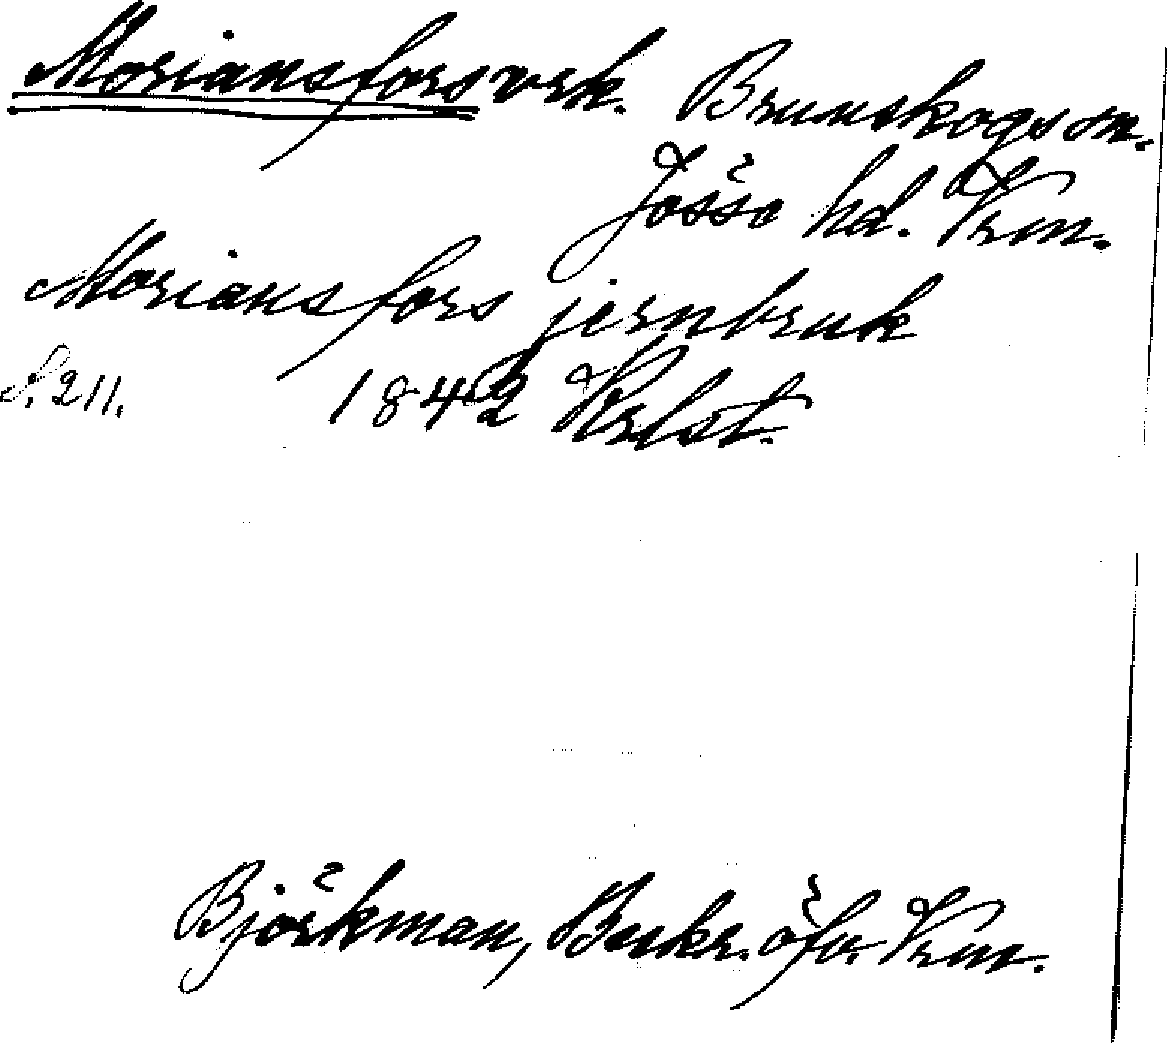 Moriansfors vrk. Brunskogs sn.
Jösse hd. Vrm.
Moriansfors jernbruk
S. 211. 1842 Krlst.
Björkman, Beskr. öfv. Vrm.